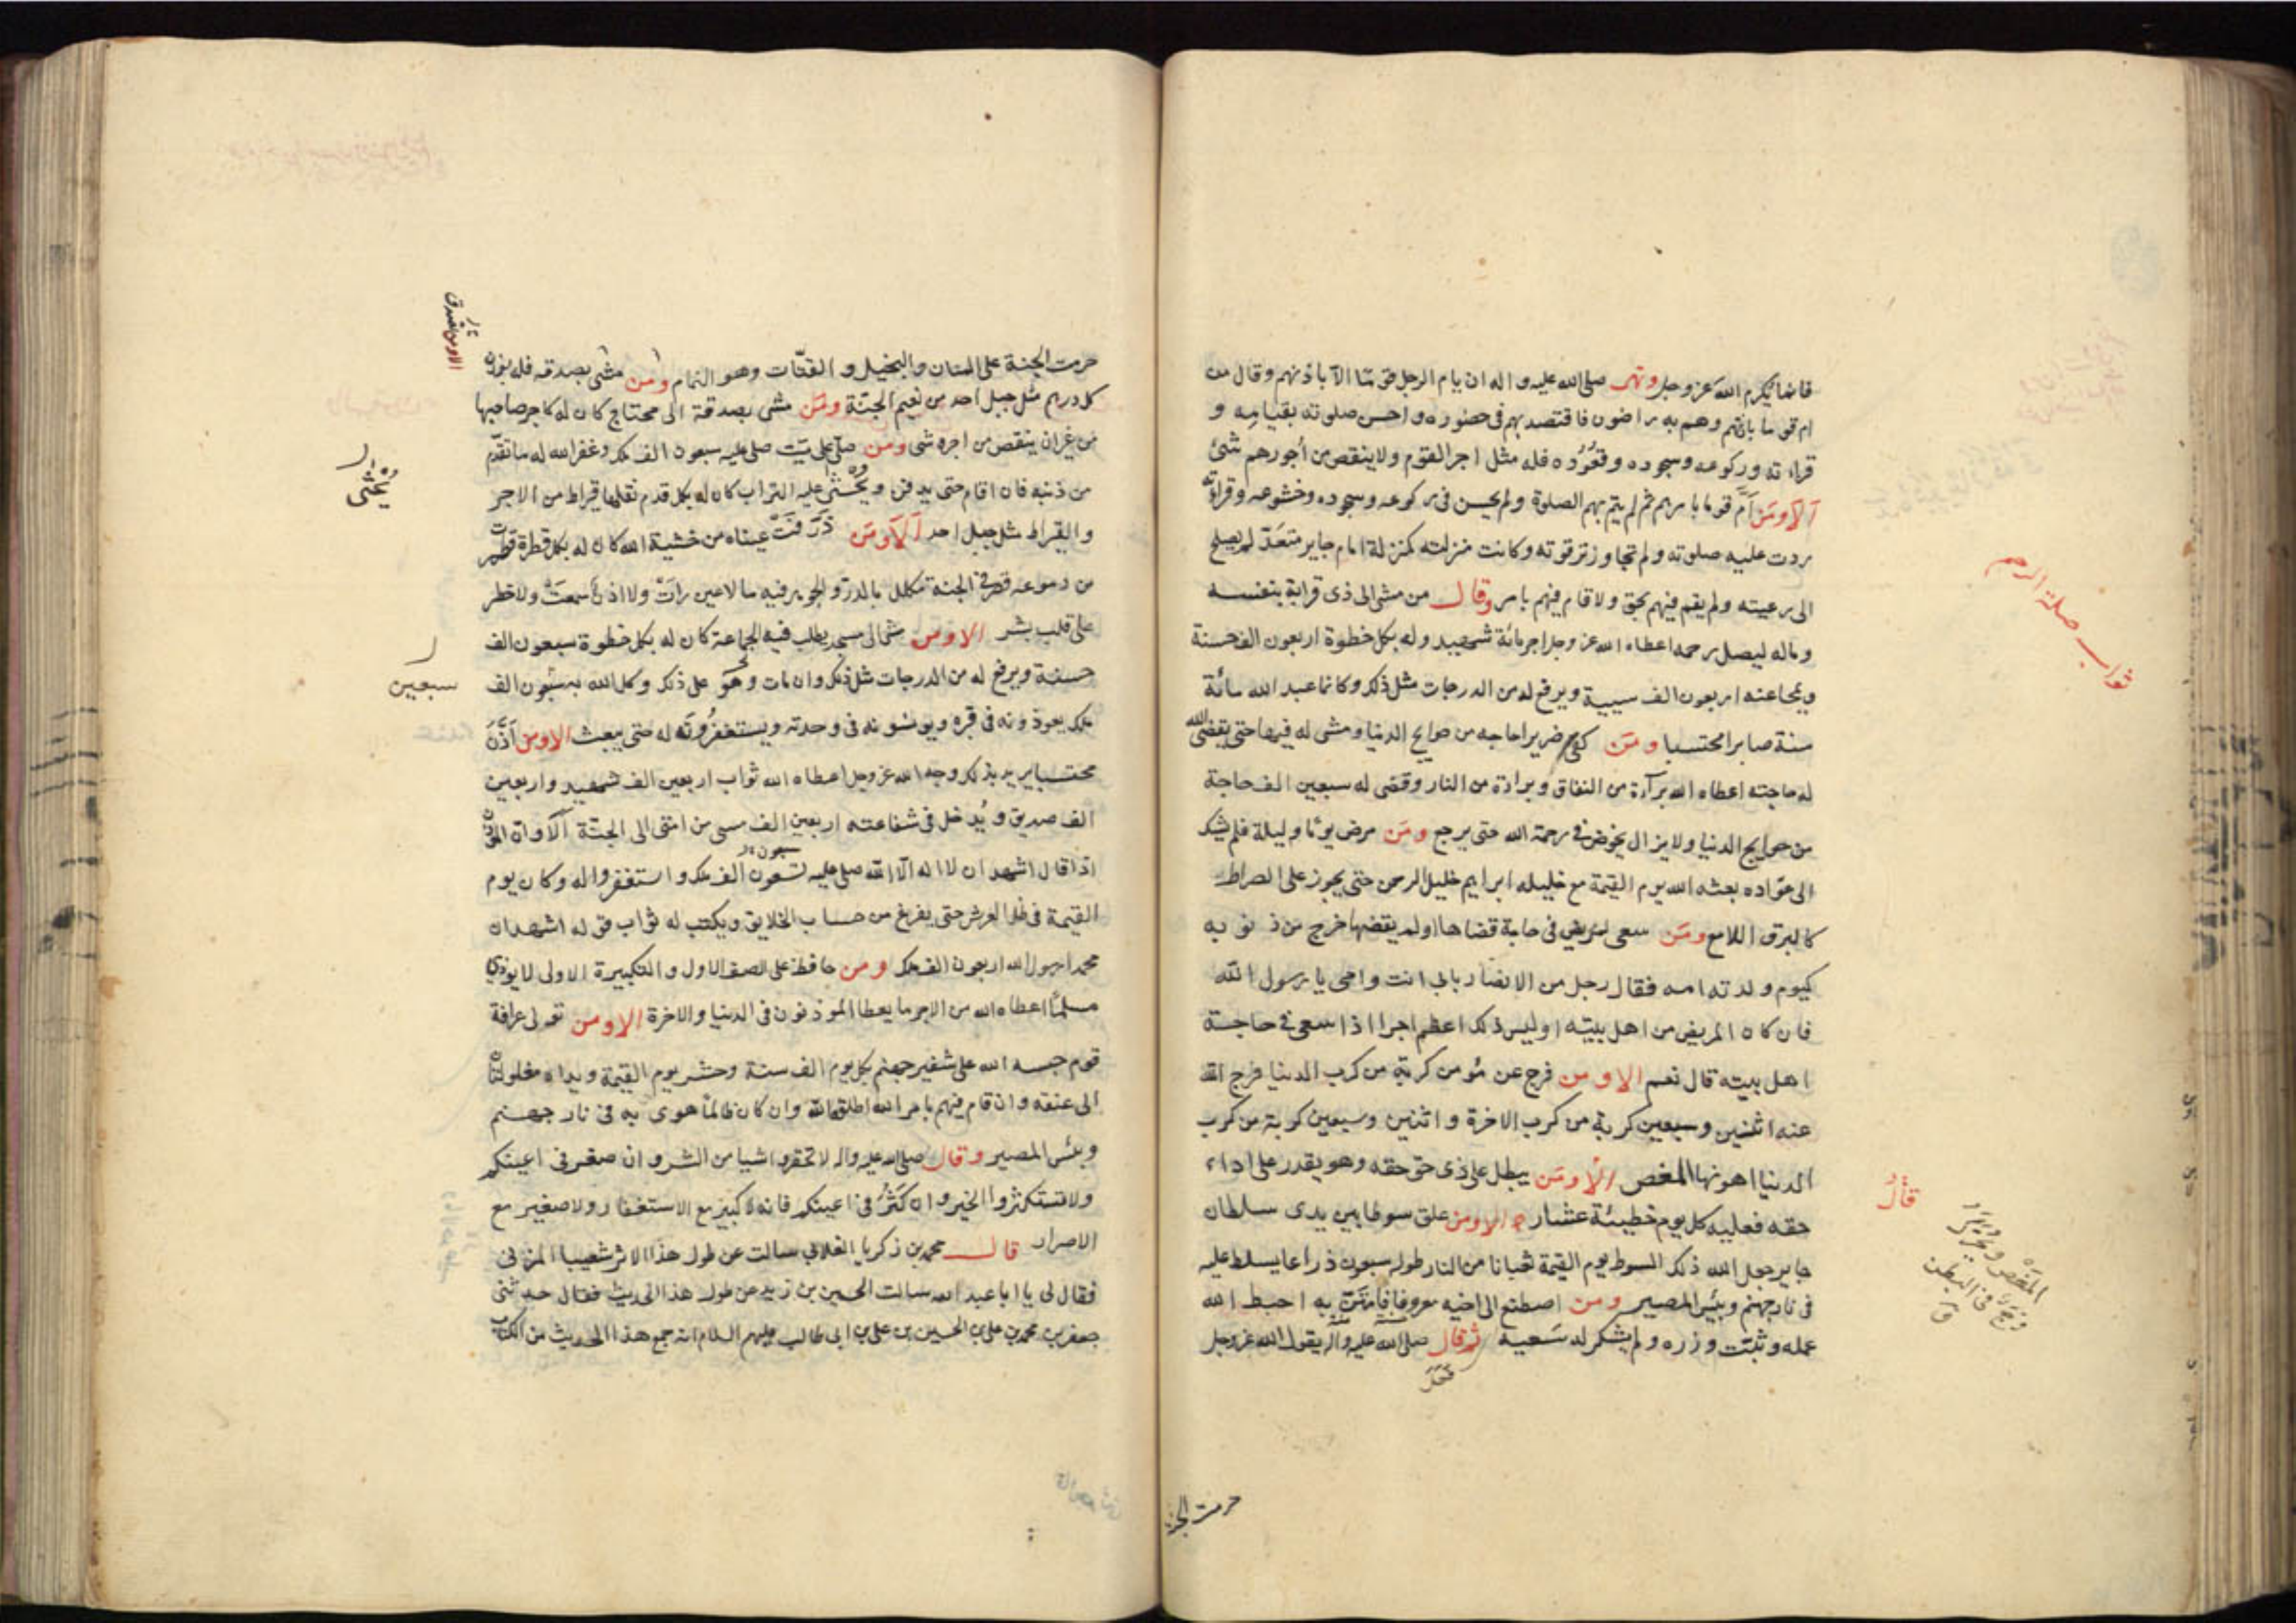 فانما يكرم الله عز وجل ونهى صلى الله عليه واله ان يام الرجل قوما الا باذنهم وقال من
ام قوما باذنهم وهم به راضون فاقتصد بهم في حضوره واحسن صلوته بقيامه و
قراءته وركوعه وسجوده وقعوده فله مثل اجر القوم ولا ينقص من أجورهم شئ
ألا ومن أم قوما بامرهم ثم لم يتم بهم الصلوة ولم يحسن في ركوعه وسجوده وخشوعه وقراءته
ردت عليه صلوته ولم تجاوز ترقوته وكانت منزلته كمنزلة امام جاير متعد لم يصلح
الى رعيته ولم يقم فيهم بحق ولا قام فيهم بامر وقال من مشى الى ذى قرابة بنفسه
وماله ليصل رحمه اعطاه الله عز وجل اجر مائة شهيد وله بكل خطوة اربعون الف حسنة
ويمحا عنه اربعون الف سيية ويرفع له من الدرجات مثل ذلك وكانما عبد الله مائة
سنة صابرا محتسبا ومن كفى ضريرا حاجه من حوايج الدنيا ومشى له فيها حتى يقضى الله
له حاجته اعطاه الله برآءة من النفاق وبراءة من النار وقضى له سبعين الف حاجة
من حوايج الدنيا ولا يزال يخوض في رحمة الله حتى يرجع ومن مرض يوما وليلة فلم يشك
الى عواده بعثه الله يوم القيمة مع خليله ابراهيم خليل الرحمن حتى يجوز على الصراط
كالبرق اللامع ومن سعى لمريض في حاجة قضاها اولم يقضها خرج من ذنوبه
كيوم ولدته امه فقال رجل من الانصار بابى انت وامى يا رسول الله
فان كان المريض من اهل بيته اوليس ذلك اعظم اجرا اذا سعى في حاجة
اهل بيته قال نعم الا ومن فرج عن مؤمن كربة من كرب الدنيا فرج الله
عنه اثنين وسبعين كربة من كرب الاخرة واثنين وسبعين كوبة من كرب
الدنيا اهونها المغص الا ومن يبطل على ذى حق حقه وهو يقدر على اداء
حقه فعليه كل يوم خطيئة عشار الا ومن علق سوطا بين يدى سلطان
جاير جعل الله ذلك السوط يوم القيمة ثعبانا من النار طوله سبعون ذراعا يسلط عليه
في نار جهنم وبئس المصير ومن اصطنع الى اخيه معروفا فامتن به احبط الله
عمله وثبت وزره ولم يشكر له سعيه ثم قال صلى الله عليه واله يقول الله عز وجل
ثواب صلة الرحم
قال
المغص ويحرك
وجع في البطن
ق
حرمت الجنة
حرمت الجنة على المنان والبخيل والقتات وهو النمام ومن مشى بصدقه فله بوزن
كل درهم مثل جبل احد من نعيم الجنة ومن مشى بصدقة الى محتاج كان له كاجر صاحبها
من غير ان ينقص من اجره شى ومن صلى على ميت صلى عليه سبعون الف ملك وغفر الله له ما تقدم
من ذنبه فان اقام حتى يدفن ويحثى عليه التراب كان له بكل قدم نقلها قيراط من الاجر
والقيراط مثل جبل احد ألا ومن ذرفت عيناه من خشية الله كان له بكل قطرة قطرت
من دموعه قصر في الجنة مكلل بالدر والجوهر فيه ما لا عين رات ولا اذن سمعت ولا خطر
على قلب بشر الا ومن مشى الى مسجد يطلب فيه الجماعة كان له بكل خطوة سبعون الف
حسنة ويرفع له من الدرجات مثل ذلك وان مات وهو على ذلك وكل الله به سبعون الف
ملك يعوذونه في قبره ويونسونه في وحدته ويستغفرونه له حتى يبعث الا ومن أذن
محتسبا يريد بذلك وجه الله عز وجل اعطاه الله ثواب اربعين الف شهيد واربعين
الف صديق ويدخل في شفاعته اربعين الف مسى من امتى الى الجنة ألا وان المؤذن
اذا قال اشهد ان لا اله الا الله صلى عليه تسعون الف ملك واستغفروا له وكان يوم
القيمة في ظل العرش حتى يفرغ من حساب الخلايق ويكتب له ثواب قوله اشهد ان
محمدا رسول الله اربعون الف ملك ومن حافظ على الصف الاول والتكبيرة الاولى لا يوذى
مسلما اعطاه الله من الاجر ما يعطا المؤذنون في الدنيا والاخرة الا ومن تولى عرافة
قوم حبسه الله على شفير جهنم بكل يوم الف سنة وحشر يوم القيمة ويداه مغلولتان
الى عنقه وان قام فيهم بامر الله اطلقه الله وان كان ظالما هوى به في نار جهنم
وبئس المصير وقال صلى الله عليه واله لا تحقروا شيا من الشر وان صغر في اعينكم
ولا تستكثروا الخير وان كثر في اعينكم فانه لا كبير مع الاستغفار ولا صغير مع
الاصرار قال محمد بن زكريا الغلابى سالت عن طول هذا الاثر شعيبا المزنى
فقال لى يا ابا عبد الله سالت الحسين بن زيد عن طول هذا الحديث فقال حدثنى
جعفر بن محمد بن على بن الحسين بن على بن ابى طالب عليهم السلام انه جمع هذا الحديث من الكتاب
سبعون
الا ومن تصدق
ويحثى
سبعين